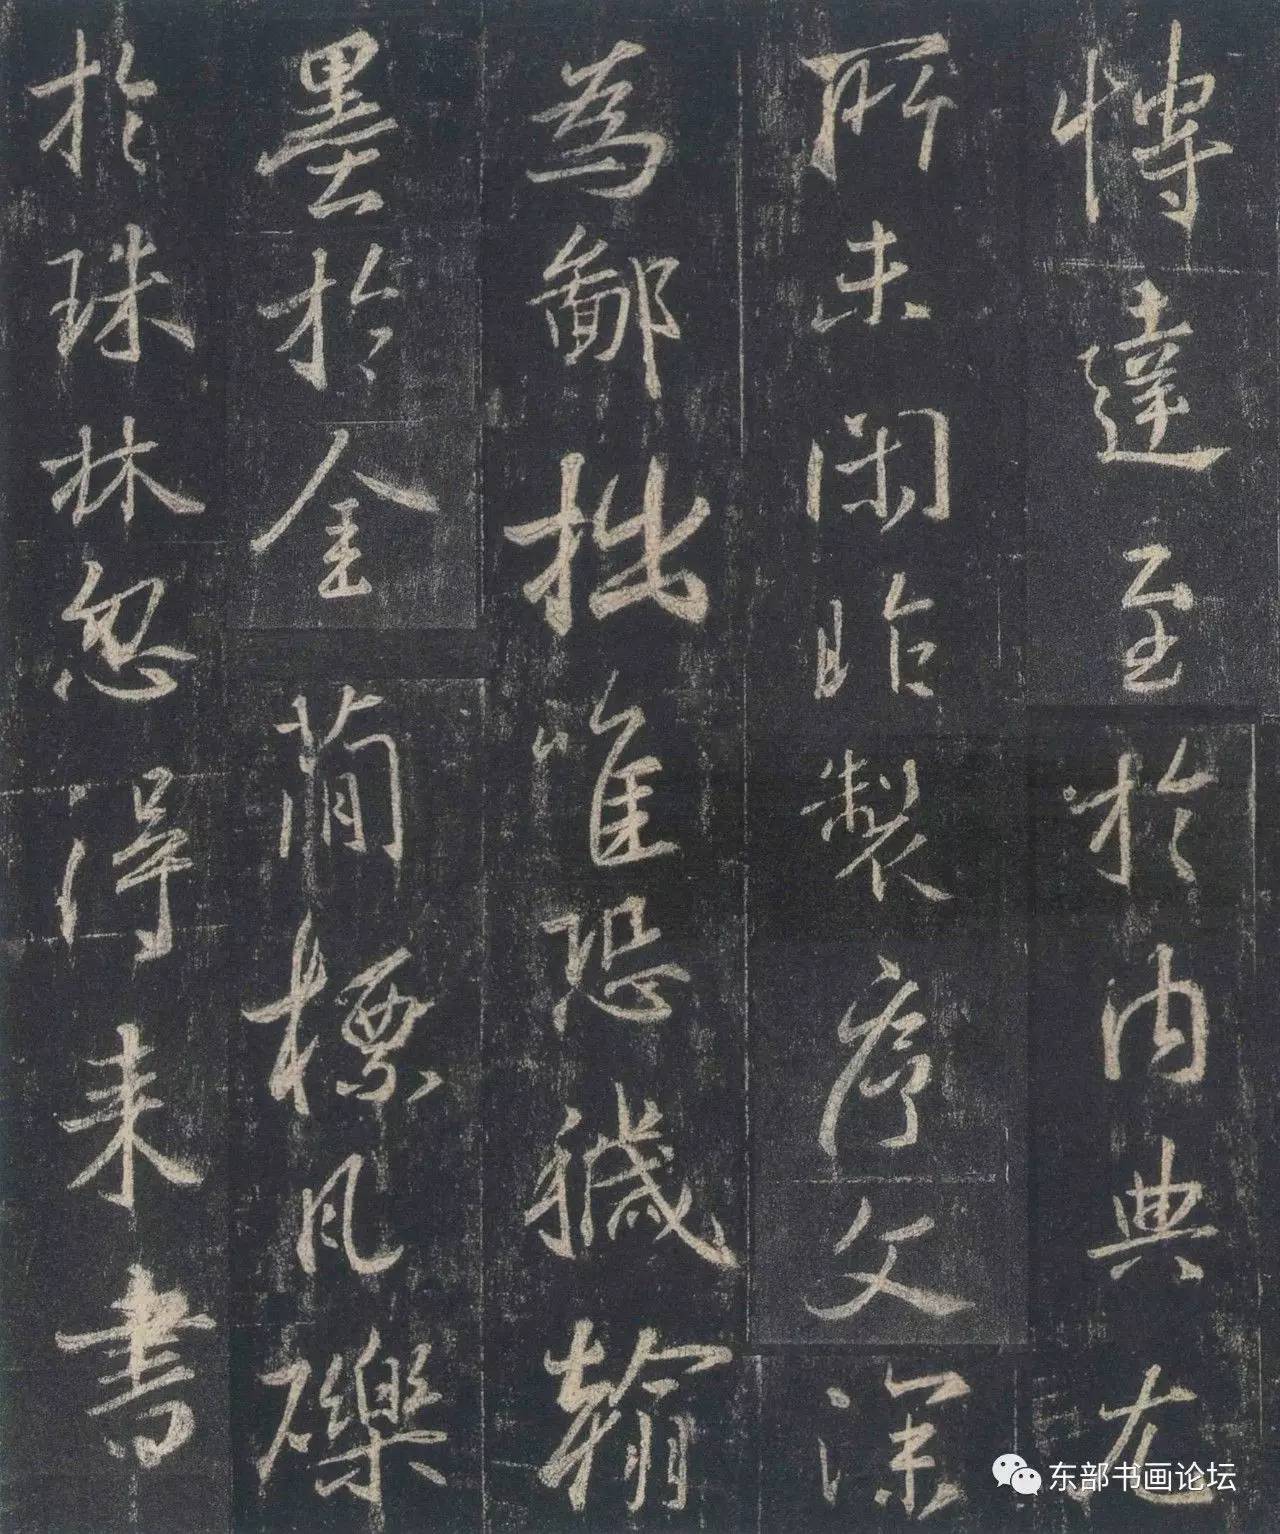 慱達至於内典尤
所未閑昨製序文深
為鄙拙唯恐穢翰
墨於金蕳標風礫
於珠林忽得来書
东部书画论坛